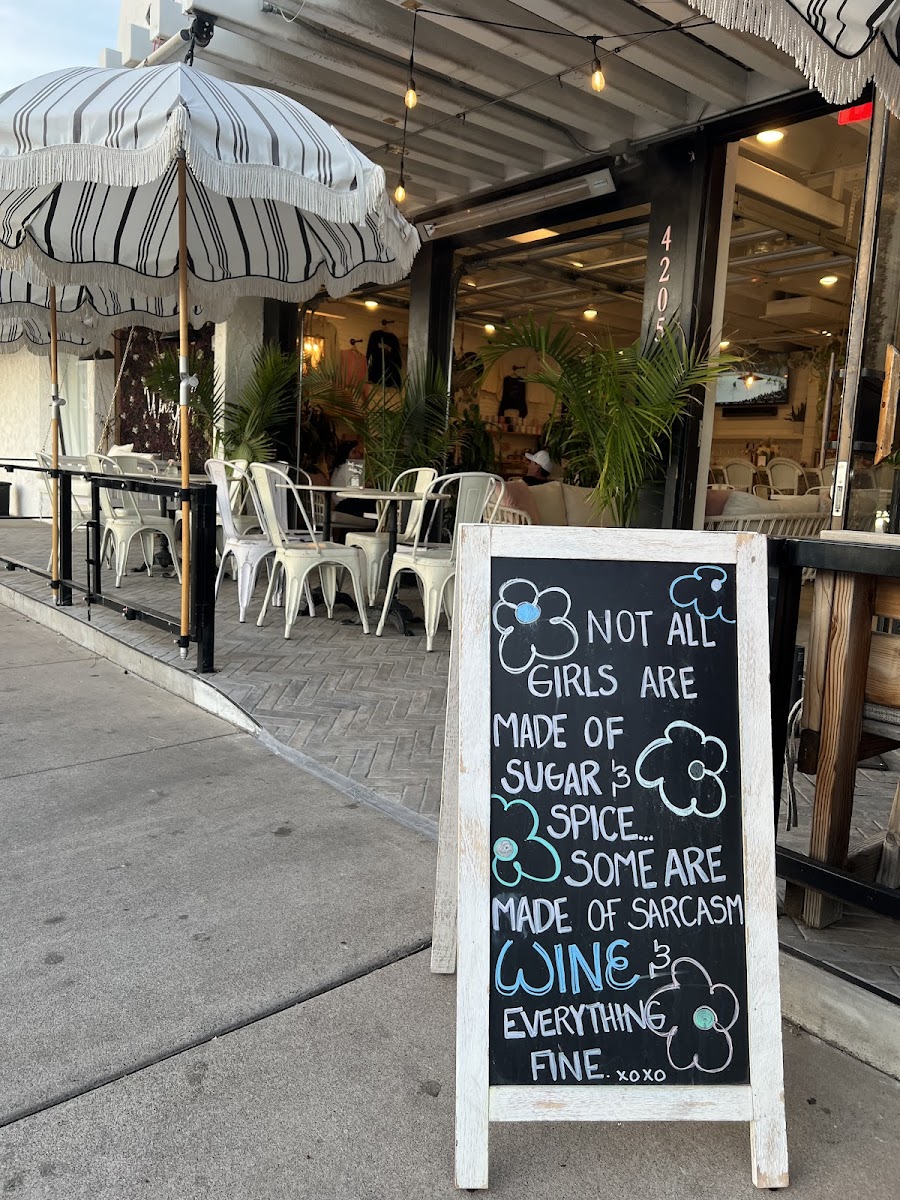 4205
NOT ALL
GIRLS ARE
MADE OF
SUGAR &
SPICE...
SOME ARE
MADE OF SARCASM
WINE &
EVERYTHING
FINE. XOXO